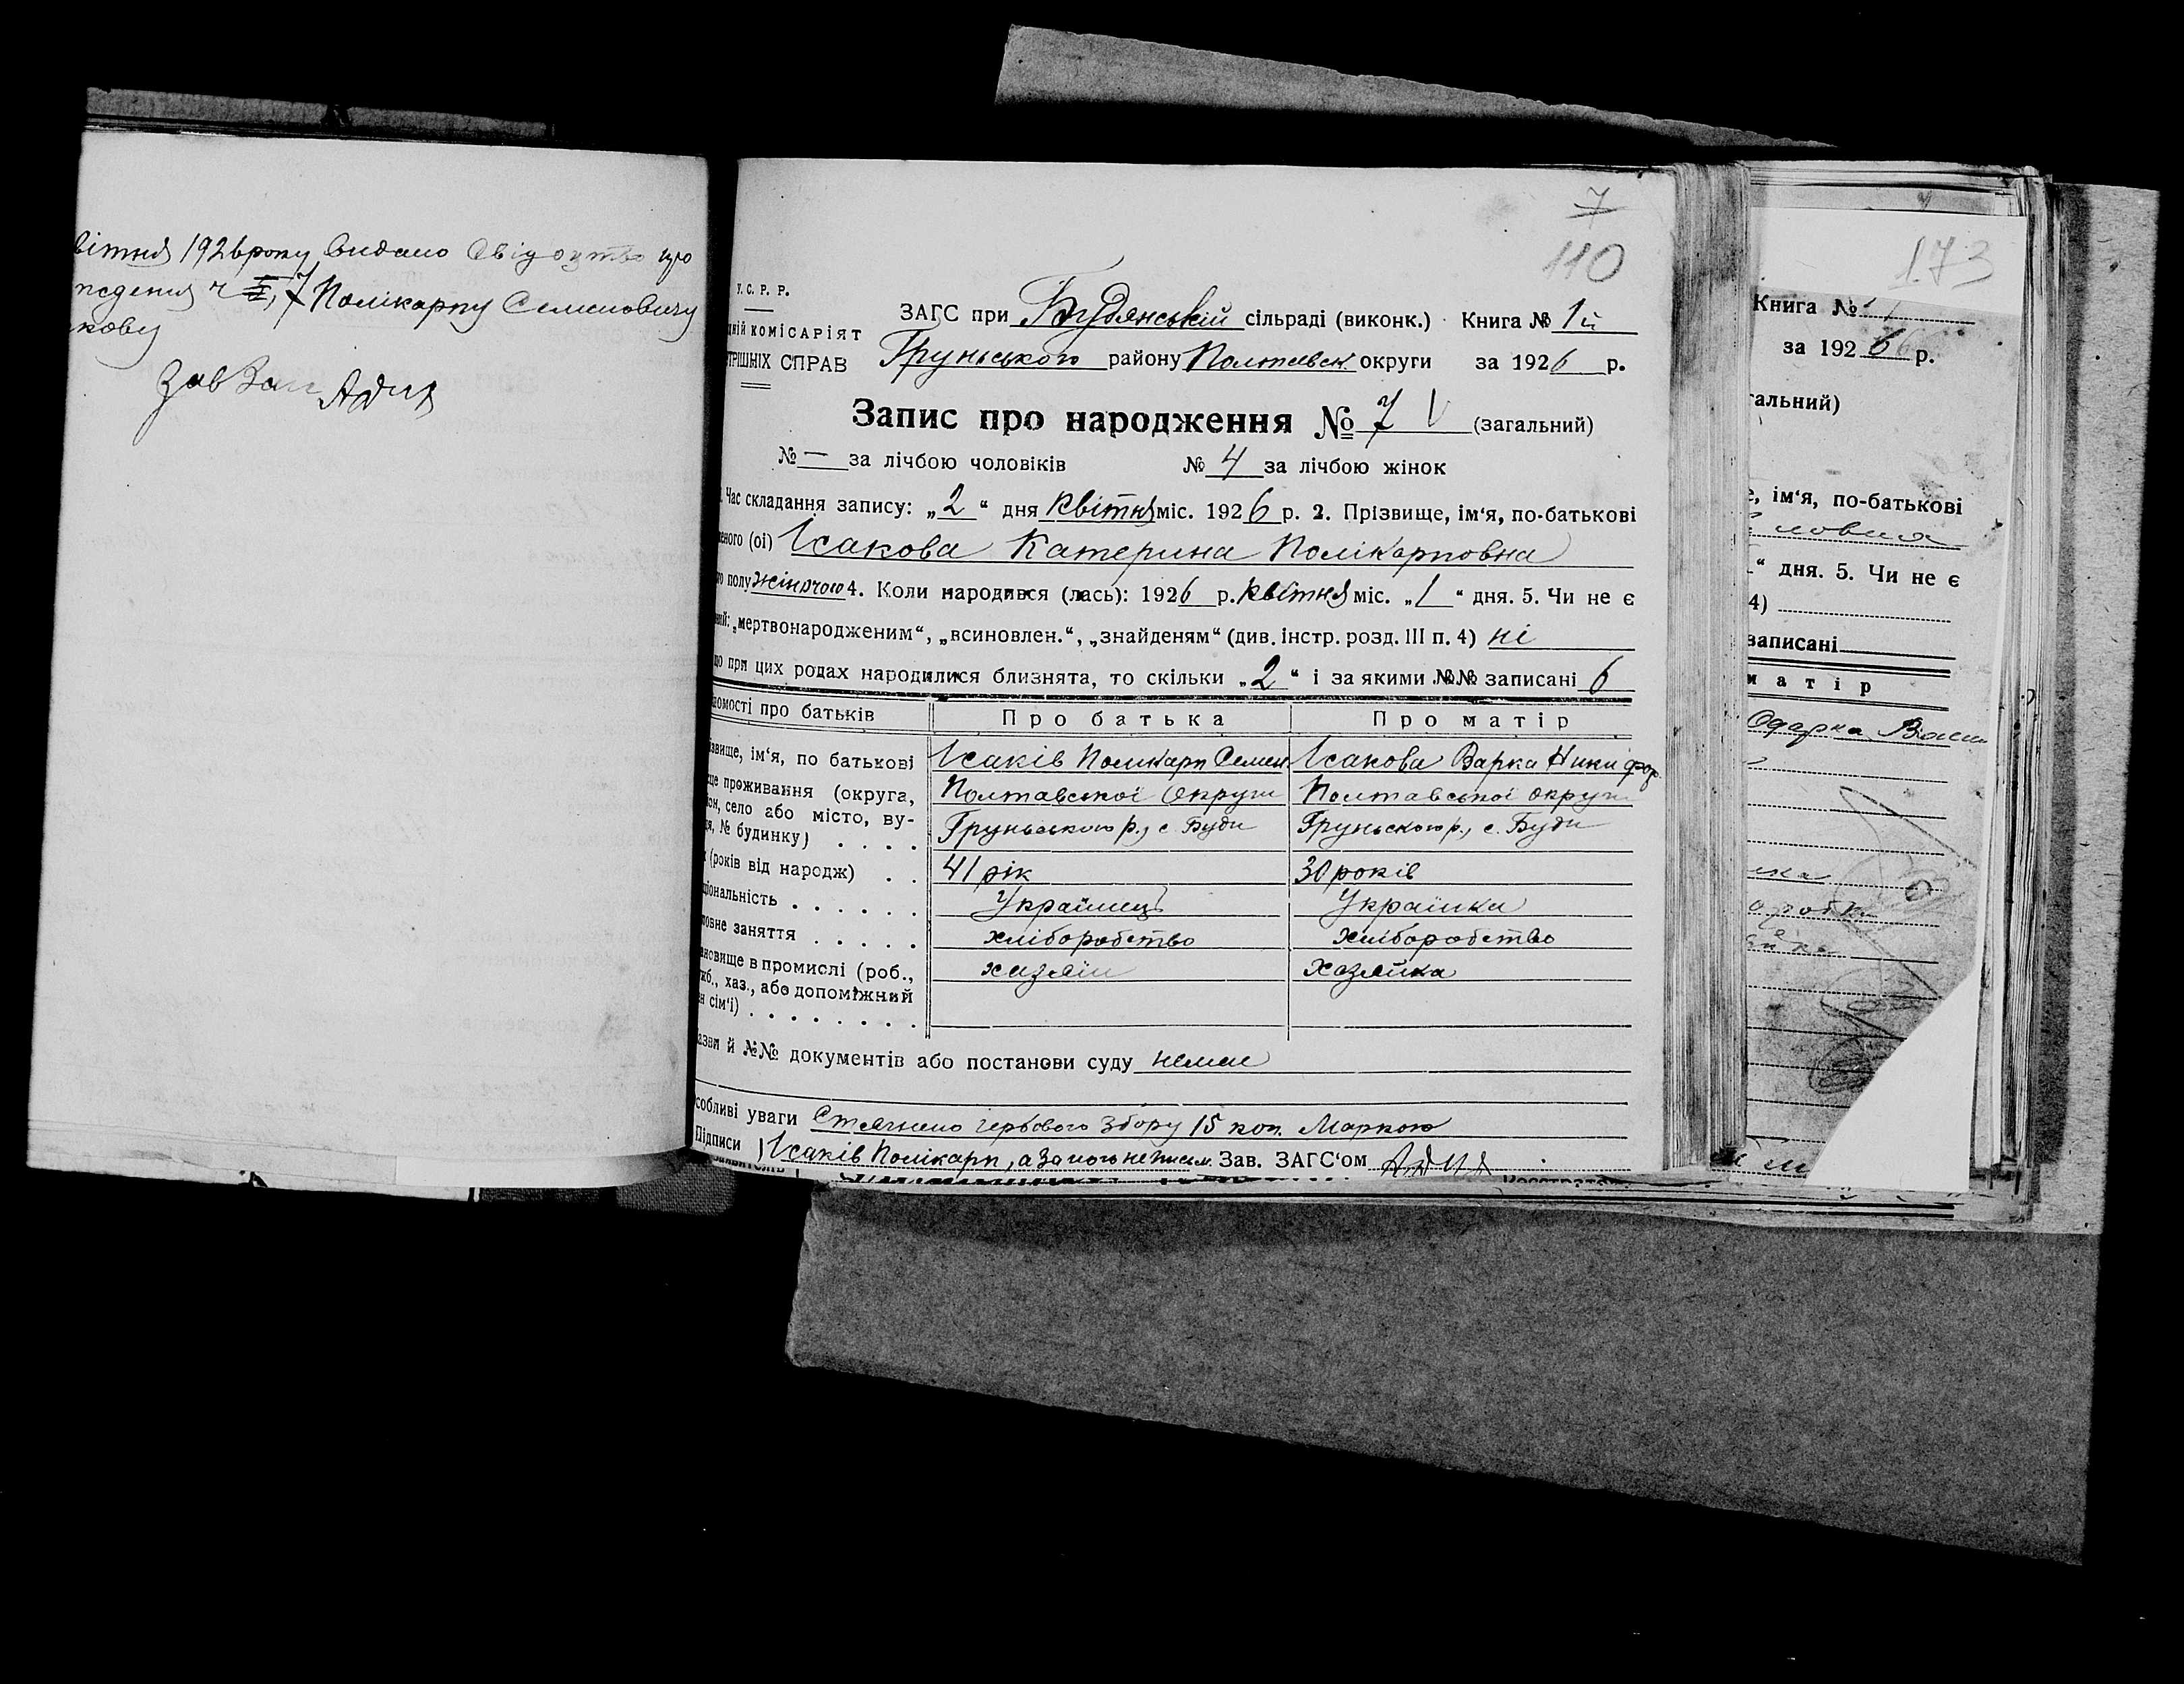 вітня 1926 року видано Свідоцтво про
7 Полікарпу Семеновичу
кову
7
110
У. С. Р. Р.
ній КОМІСАРІЯТ
ТРІШНІХ СПРАВ
ЗАГС при Будянській сільраді (виконк.) Книга № 1й
Груньського району Полтавськ. округи за 1926 р.
Запис про народження № 7 V (загальний)
№ — за лічбою чоловіків № 4 за лічбою жінок
Час складання запису: „2“ дня квітня міс. 1926 р. 2. Прізвище, ім‘я, по-батькові
еного (ої) Ісакова Катерина Полікарповна
го полу жіночого 4. Коли народився (лась): 1926 р. квітня міс. „1“ дня. 5. Чи не є
ний: „мертвонародженим“, „всиновлен.“, „знайденям“ (див. інстр. розд. III п. 4) ні
що при цих родах народилися близнята, то скільки „2“ і за якими №№ записані 6
домості про батьків Про батька Про матір
ізвище, ім‘я, по батькові Ісаків Полікарп Семен Ісакова Варка Никифор.
ще проживання (округа, Полтавської Округи Полтавської округи
он, село або місто, ву-
я, № будинку) . . . . Груньського р., с. Буди Груньского р., с. Буди
к (років від народж) . . 41 рік 30 років
ціональність . . . . . . Українець Українка
ловне заняття . . . . . хліборобство хліборобство
ановище в промислі (роб., хазяїн хазяйка
жб., хаз., або допоміжний
н сім‘ї) . . . . . . . .
азви й №№ документів або постанови суду немає
собливі уваги Стягнено гербового збору 15 коп. Маркою
Підписи Ісаків Полікарп, а за його неписьм. Зав. ЗАГС‘ом
173
Книга № 1
за 1926 р.
гальний)
е, ім‘я, по-батькові
“ дня. 5. Чи не є
4)
записані
матір
Одарка Васил